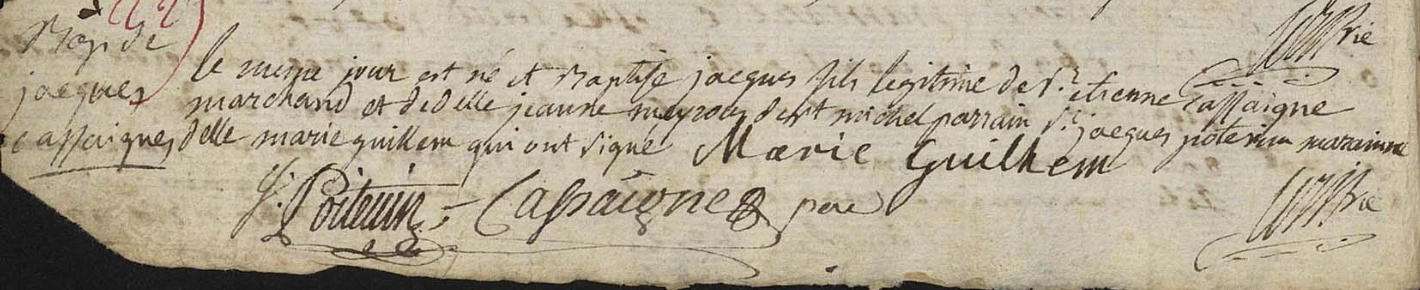 Bap. de
jacques
cassaignes
le meme jour est né et Baptise jacques fils legitime de Sr. etienne Cassaigne
marchand et de delle jeanne meyrous de st michel parrain Sr. jacques potevin marainne
delle marie guillem qui ont signé Marie Guilhem
J. Poitevin Cassaignes pere